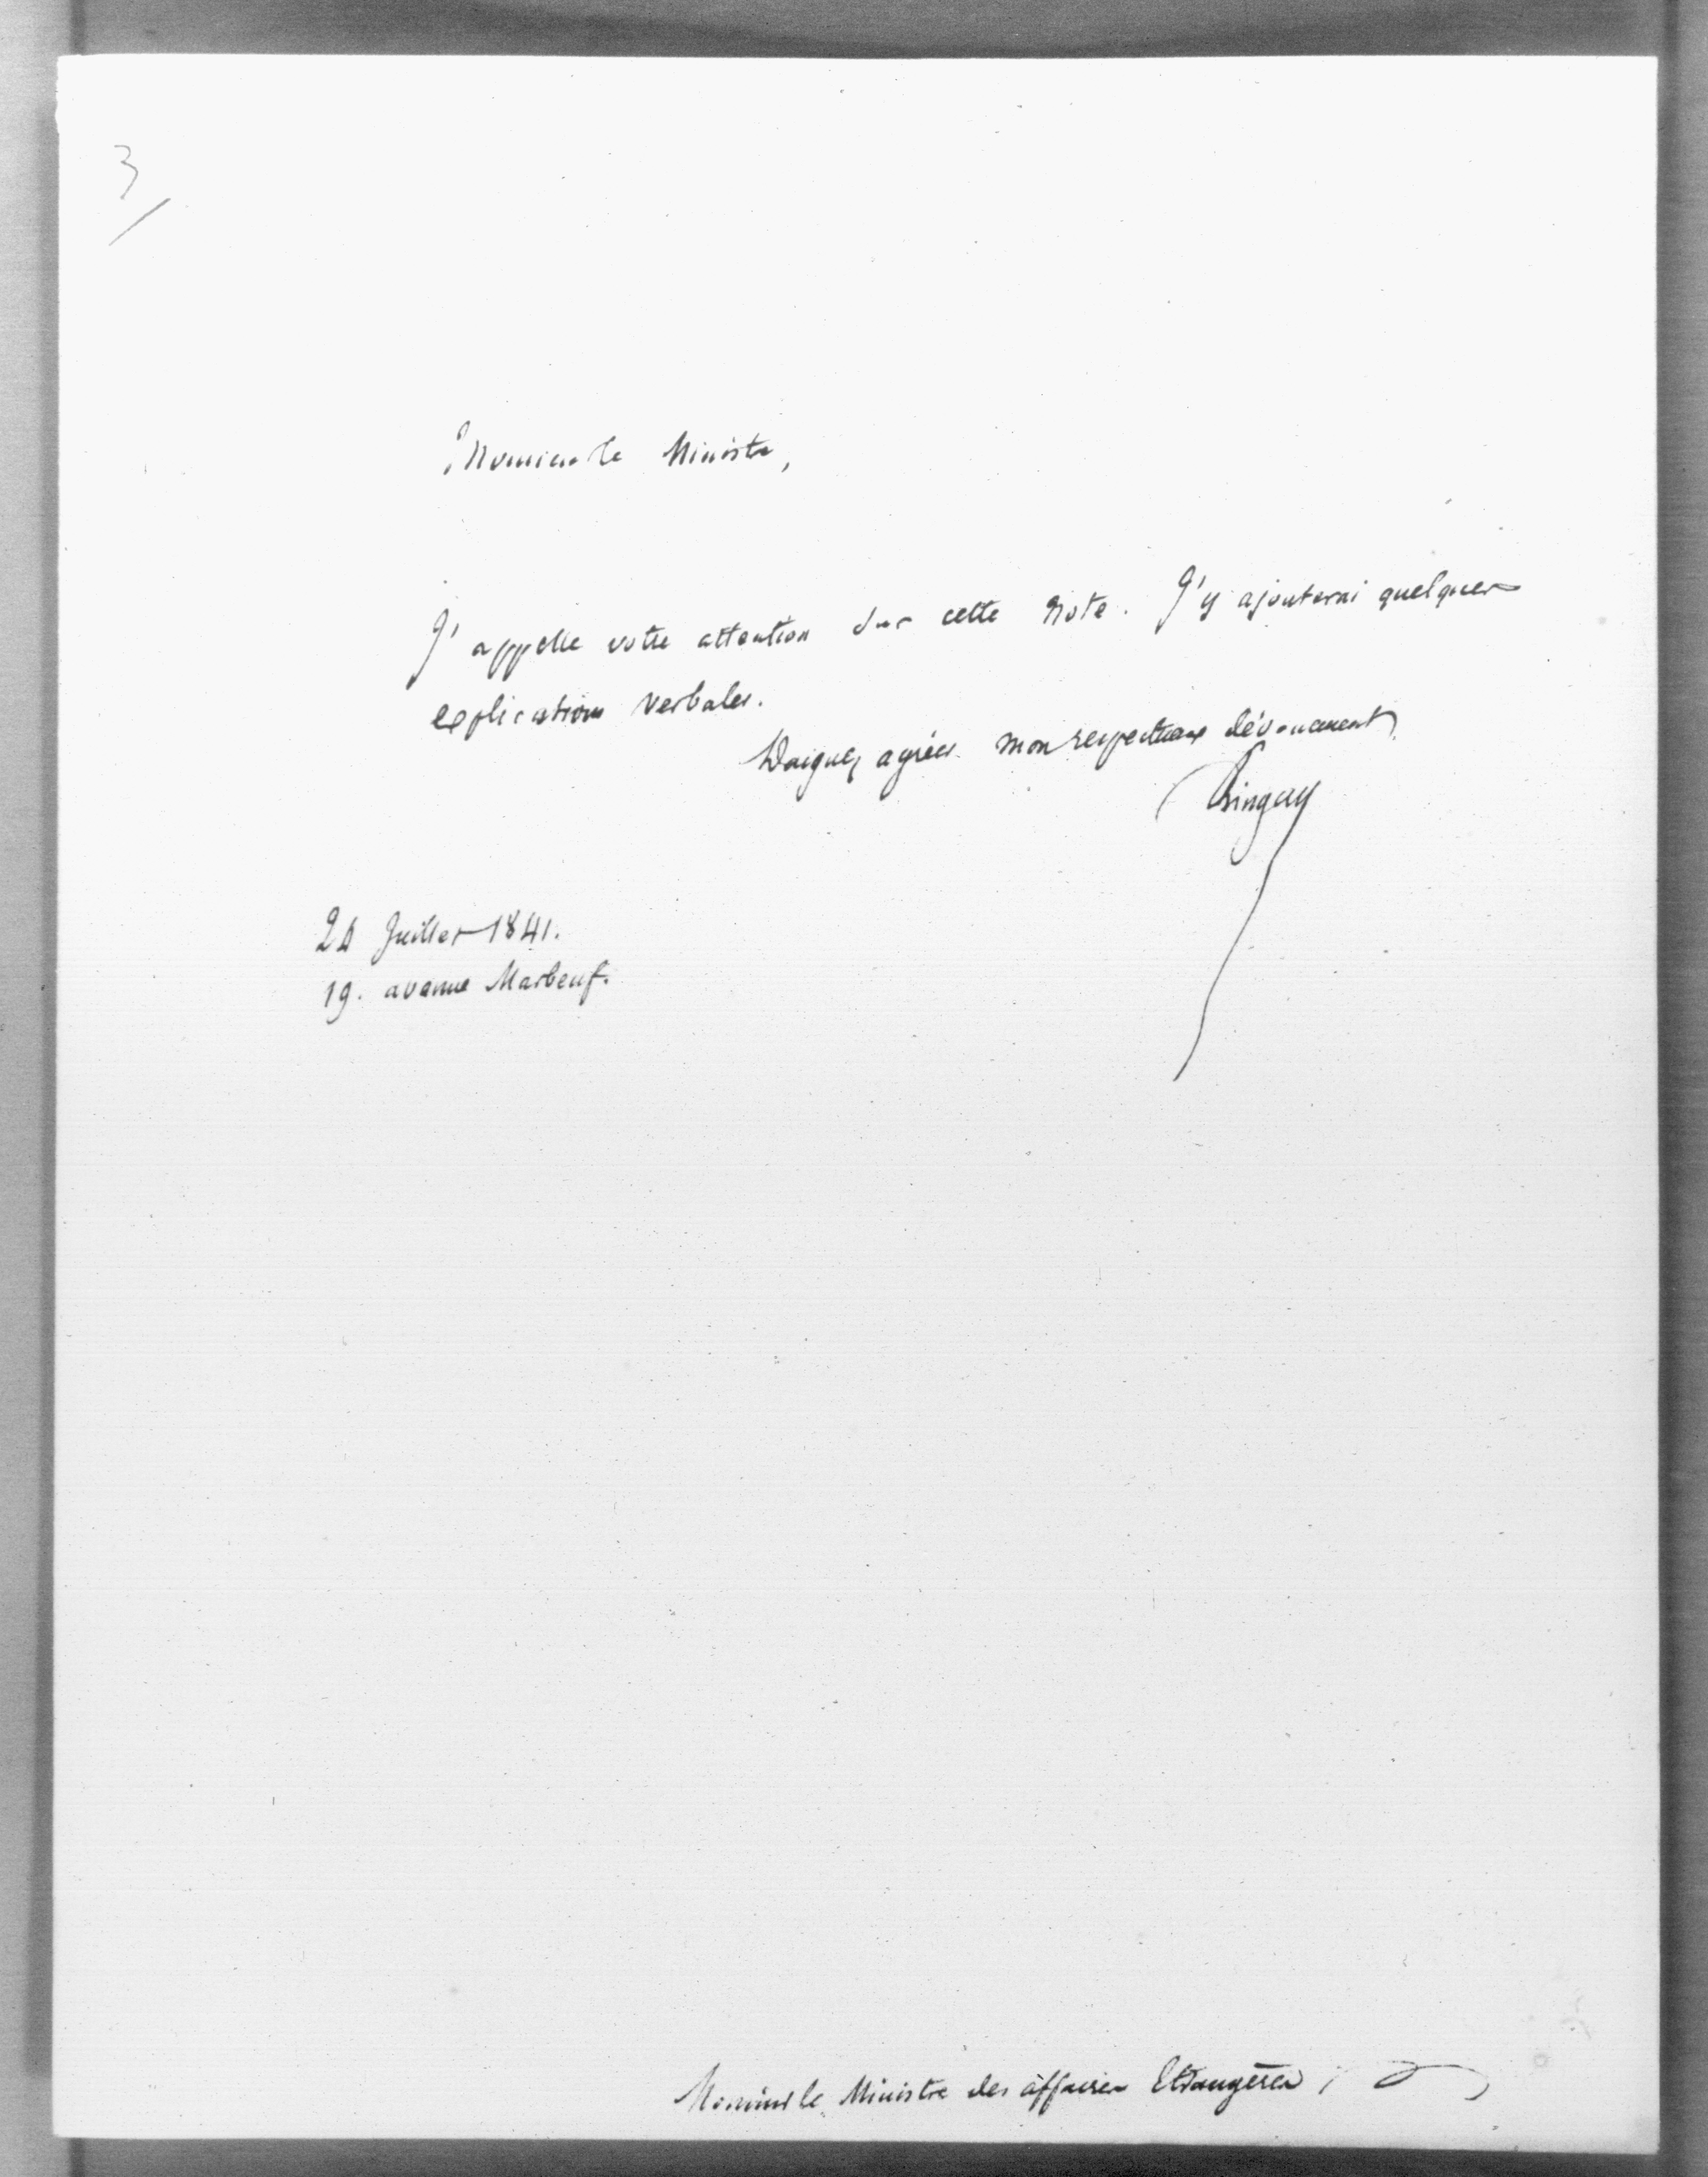 3
Monsieur le Ministre,
J'appelle votre attention sur cette Note. J'y ajouterai quelques
explications verbales.
Daignez agréer mon respectueux dévouement
Linguay
24 Juillet 1841.
19. avenue Marbeuf.
Monsieur le Ministre des affaires Etrangères